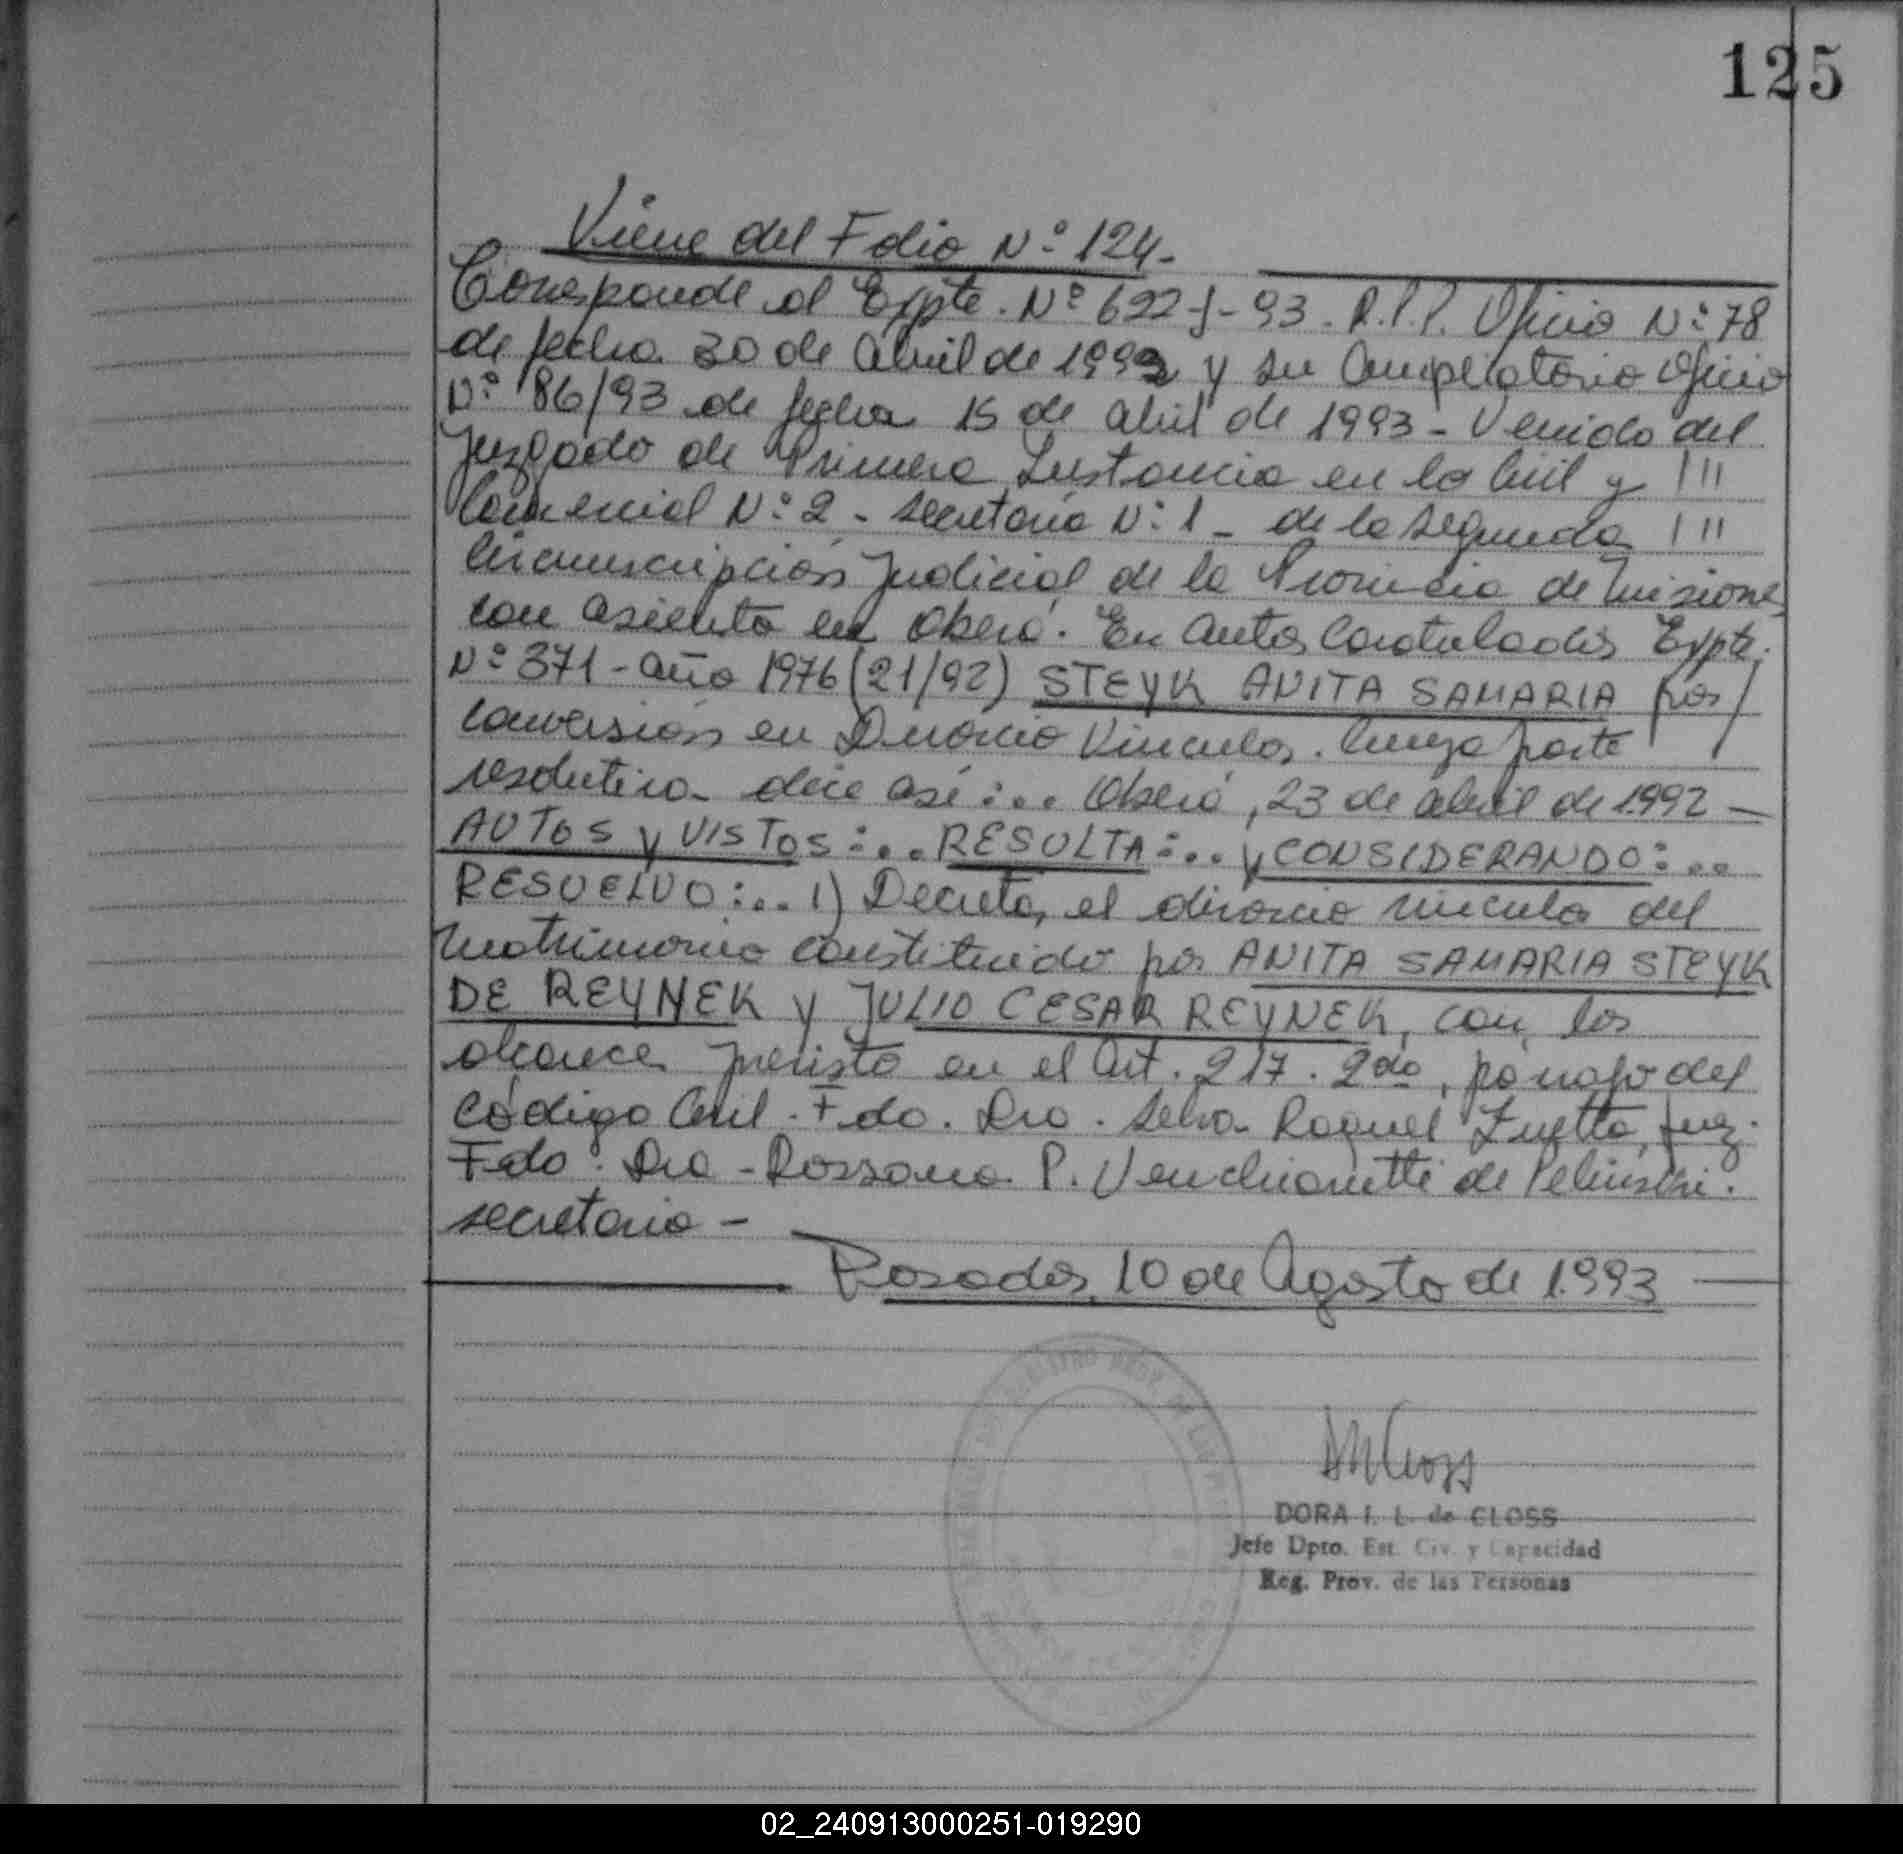 125
Viene del Folio Nº 124-
Corresponde al Expte. Nº 622-J-93. R.P.P. Oficio Nº 78
de fecha 30 de abril de 1992 y su Ampliatorio Oficio
Nº 86/93 de fecha 15 de abril de 1993 - Venido del
Juzgado de Primera Instancia en lo Civil y ///
Comercial Nº 2 - Secretaria Nº 1 - de la Segunda ///
Circunscripción Judicial de la Provincia de Misiones
con asiento en Oberá. En Autos Caratulados Expte.
Nº 371 - año 1976 (21/92) STEYK ANITA SAMARIA por/
conversión en Divorcio Vincular. Cuya parte /
resolutiva dice así:... Oberá, 23 de abril de 1.992 —
AUTOS y VISTOS:... RESULTA:.. y CONSIDERANDO:..
RESUELVO:... 1) Decretar, el divorcio vincular del
matrimonio constituido por ANITA SAMARIA STEYK
DE REYNEK y JULIO CESAR REYNEK, con los
alcances previsto en el Art. 217. 2do, párrafo del
Código Civil. Fdo. Dra. Selva Raquel Zuetta, Juez.
Fdo. Dra - Rossana P. Venchiarutti de
secretaria -
Posadas, 10 de Agosto de 1.993
DORA I. L. de CLOSS
Jefe Dpto. Est. Civ. y Capacidad
Reg. Prov. de las Personas
02_240913000251-019290